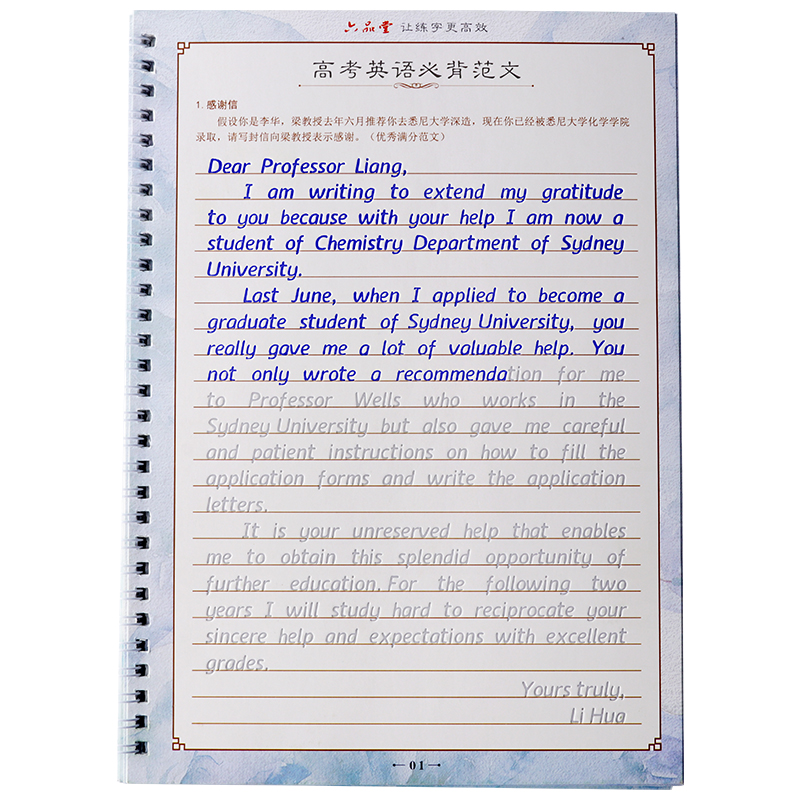 六品堂 让练字更高效
高考英语必背范文
1.感谢信
假设你是李华，梁教授去年六月推荐你去悉尼大学深造，现在你已经被悉尼大学化学学院
录取，请写封信向梁教授表示感谢。（优秀满分范文）
Dear Professor Liang,
I am writing to extend my gratitude
to you because with your help I am now a
student of Chemistry Department of Sydney
University.
Last June, when I applied to become a
graduate student of Sydney University, you
really gave me a lot of valuable help. You
not only wrote a recommendation for me
to Professor Wells who works in the
Sydney University but also gave me careful
and patient instructions on how to fill the
application forms and write the application
letters.
It is your unreserved help that enables
me to obtain this splendid opportunity of
further education. For the following two
years I will study hard to reciprocate your
sincere help and expectations with excellent
grades.
Yours truly,
Li Hua
01